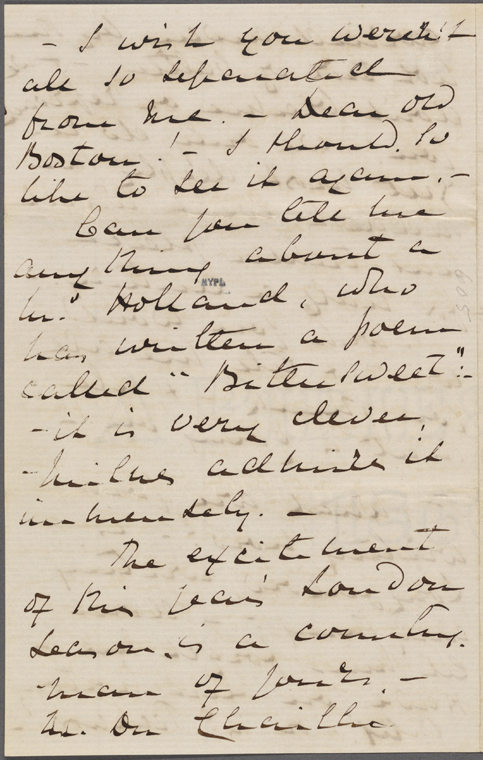 - I wish you weren't
all so separated
from me. - Dear old
Boston! - I should so
like to see it again. -
Can you tell me
any thing about a
NYPL
Mr. Holland, who
has written a poem
called "Bitter Sweet":-
- it is very clever.
- Milnes admires it
immensely. -
The excitement
of this year's London
Season. is a country.
man of yours. -
M. Du Chaillu